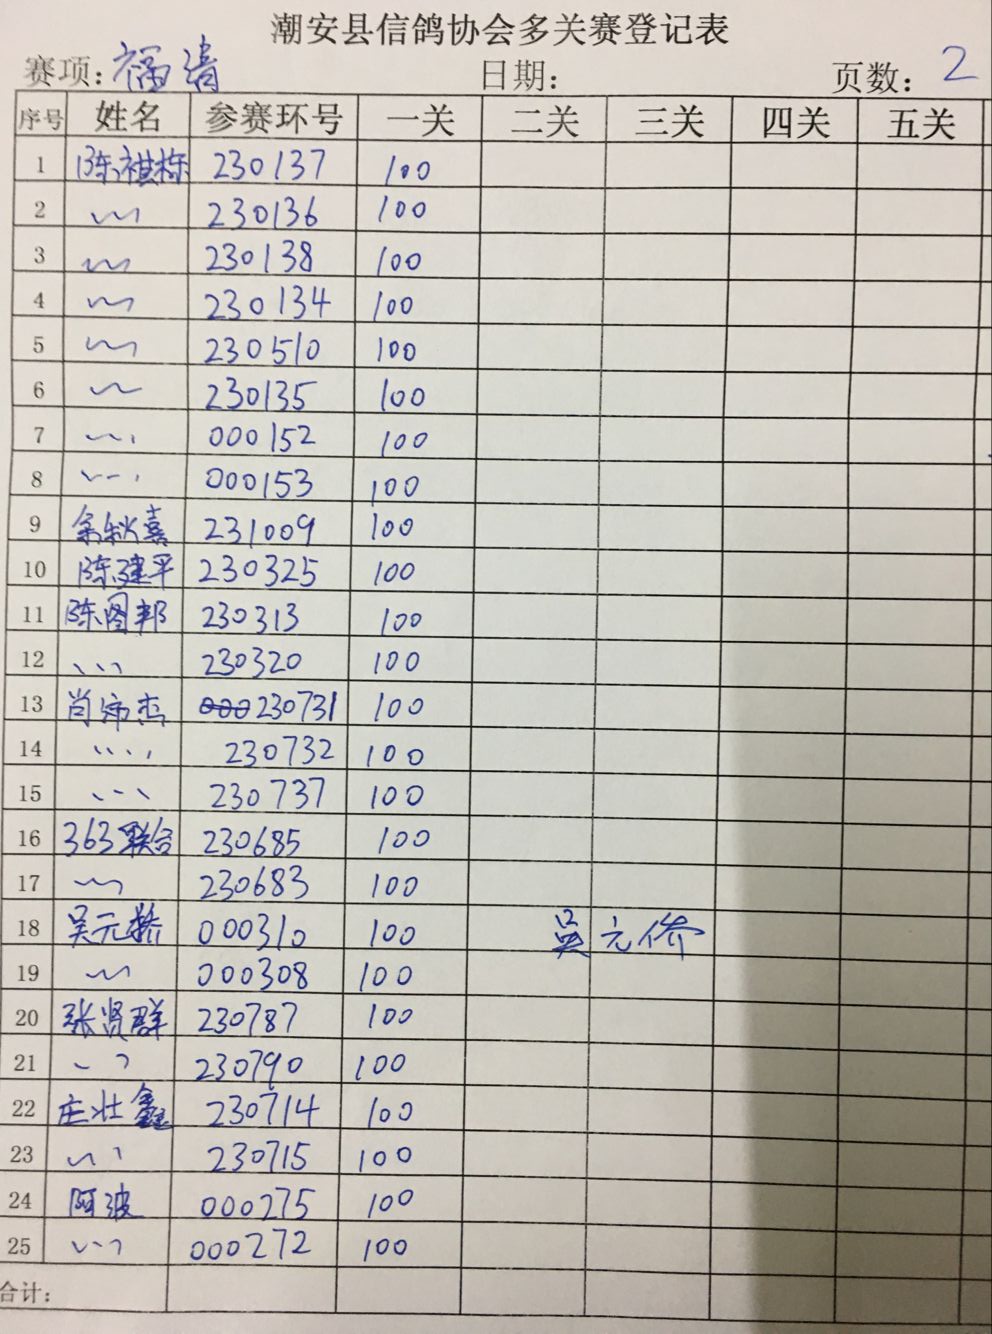 潮安县信鸽协会多关赛登记表
赛项：福清 日期： 页数：2
序号 姓名 参赛环号 一关 二关 三关 四关 五关
1 陈祺栋 230137 100
2 〃 230136 100
3 〃 230138 100
4 〃 230134 100
5 〃 230510 100
6 〃 230135 100
7 〃 000152 100
8 〃 000153 100
9 余秋喜 231009 100
10 陈建平 230325 100
11 陈图邦 230313 100
12 〃 230320 100
13 肖沛杰 230731 100
14 〃 230732 100
15 〃 230737 100
16 363联合 230685 100
17 〃 230683 100
18 吴元桥 000310 100 吴元侨
19 〃 000308 100
20 张贤群 230787 100
21 〃 230790 100
22 庄壮鑫 230714 100
23 〃 230715 100
24 阿波 000275 100
25 〃 000272 100
合计：